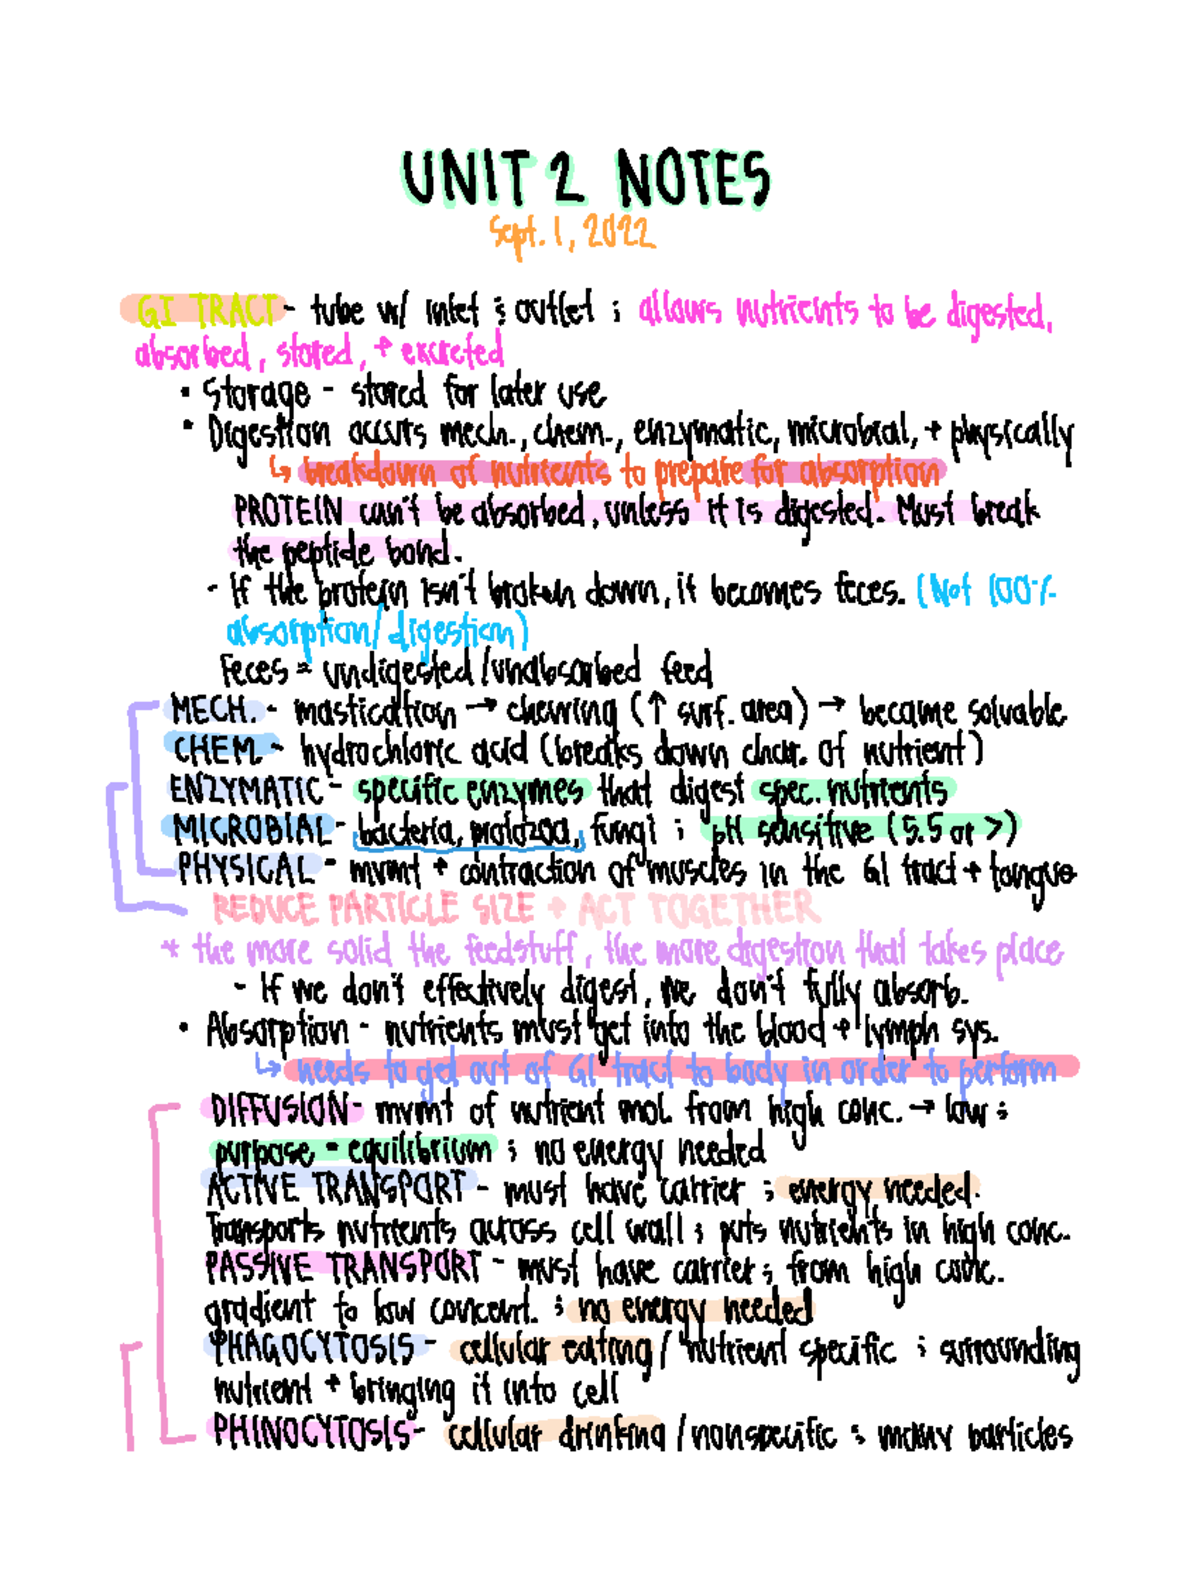 UNIT 2 NOTES
Sept. 1, 2022
GI TRACT - tube w/ inlet & outlet ; allows nutrients to be digested,
absorbed, stored, + excreted
• Storage - stored for later use
• Digestion occurs mech., chem., enzymatic, microbial, + physically
↳ breakdown of nutrients to prepare for absorption
PROTEIN can't be absorbed, unless it is digested. Must break
the peptide bond.
- If the protein isn't broken down, it becomes feces. (Not 100%
absorption/digestion)
Feces = undigested/unabsorbed feed
MECH. - mastication → chewing (↑ surf. area) → became solvable
CHEM. - hydrochloric acid (breaks down char. of nutrient)
ENZYMATIC - specific enzymes that digest spec. nutrients
MICROBIAL - bacteria, protozoa, fungi ; pH sensitive (5.5 or >)
PHYSICAL - mvmt + contraction of muscles in the GI tract + tongue
REDUCE PARTICLE SIZE + ACT TOGETHER
* the more solid the feedstuff, the more digestion that takes place
- If we don't effectively digest, we don't fully absorb.
• Absorption - nutrients must get into the blood + lymph sys.
↳ needs to get out of GI tract to body in order to perform
DIFFUSION - mvmt of nutrient mol. from high conc. → low ;
purpose = equilibrium ; no energy needed
ACTIVE TRANSPORT - must have carrier ; energy needed.
Transports nutrients across cell wall ; puts nutrients in high conc.
PASSIVE TRANSPORT - must have carrier ; from high conc.
gradient to low concent. ; no energy needed
PHAGOCYTOSIS - cellular eating / nutrient specific ; surrounding
nutrient + bringing it into cell
PHINOCYTOSIS - cellular drinking / nonspecific ; many particles